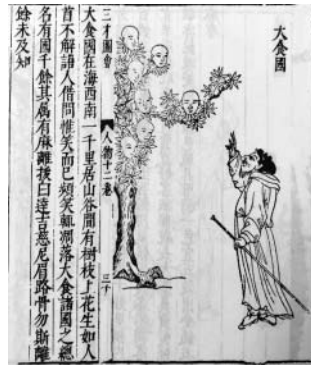 大食國
三才圖會
人物十二卷
三十
大食國在海西南一千里居山谷間有樹枝上花生如人
首不解語人借問惟笑而已頻笑輒凋落大食諸國之總
名有國千餘其属有麻離拔白達吉慈尼眉路骨勿斯離
餘未及知